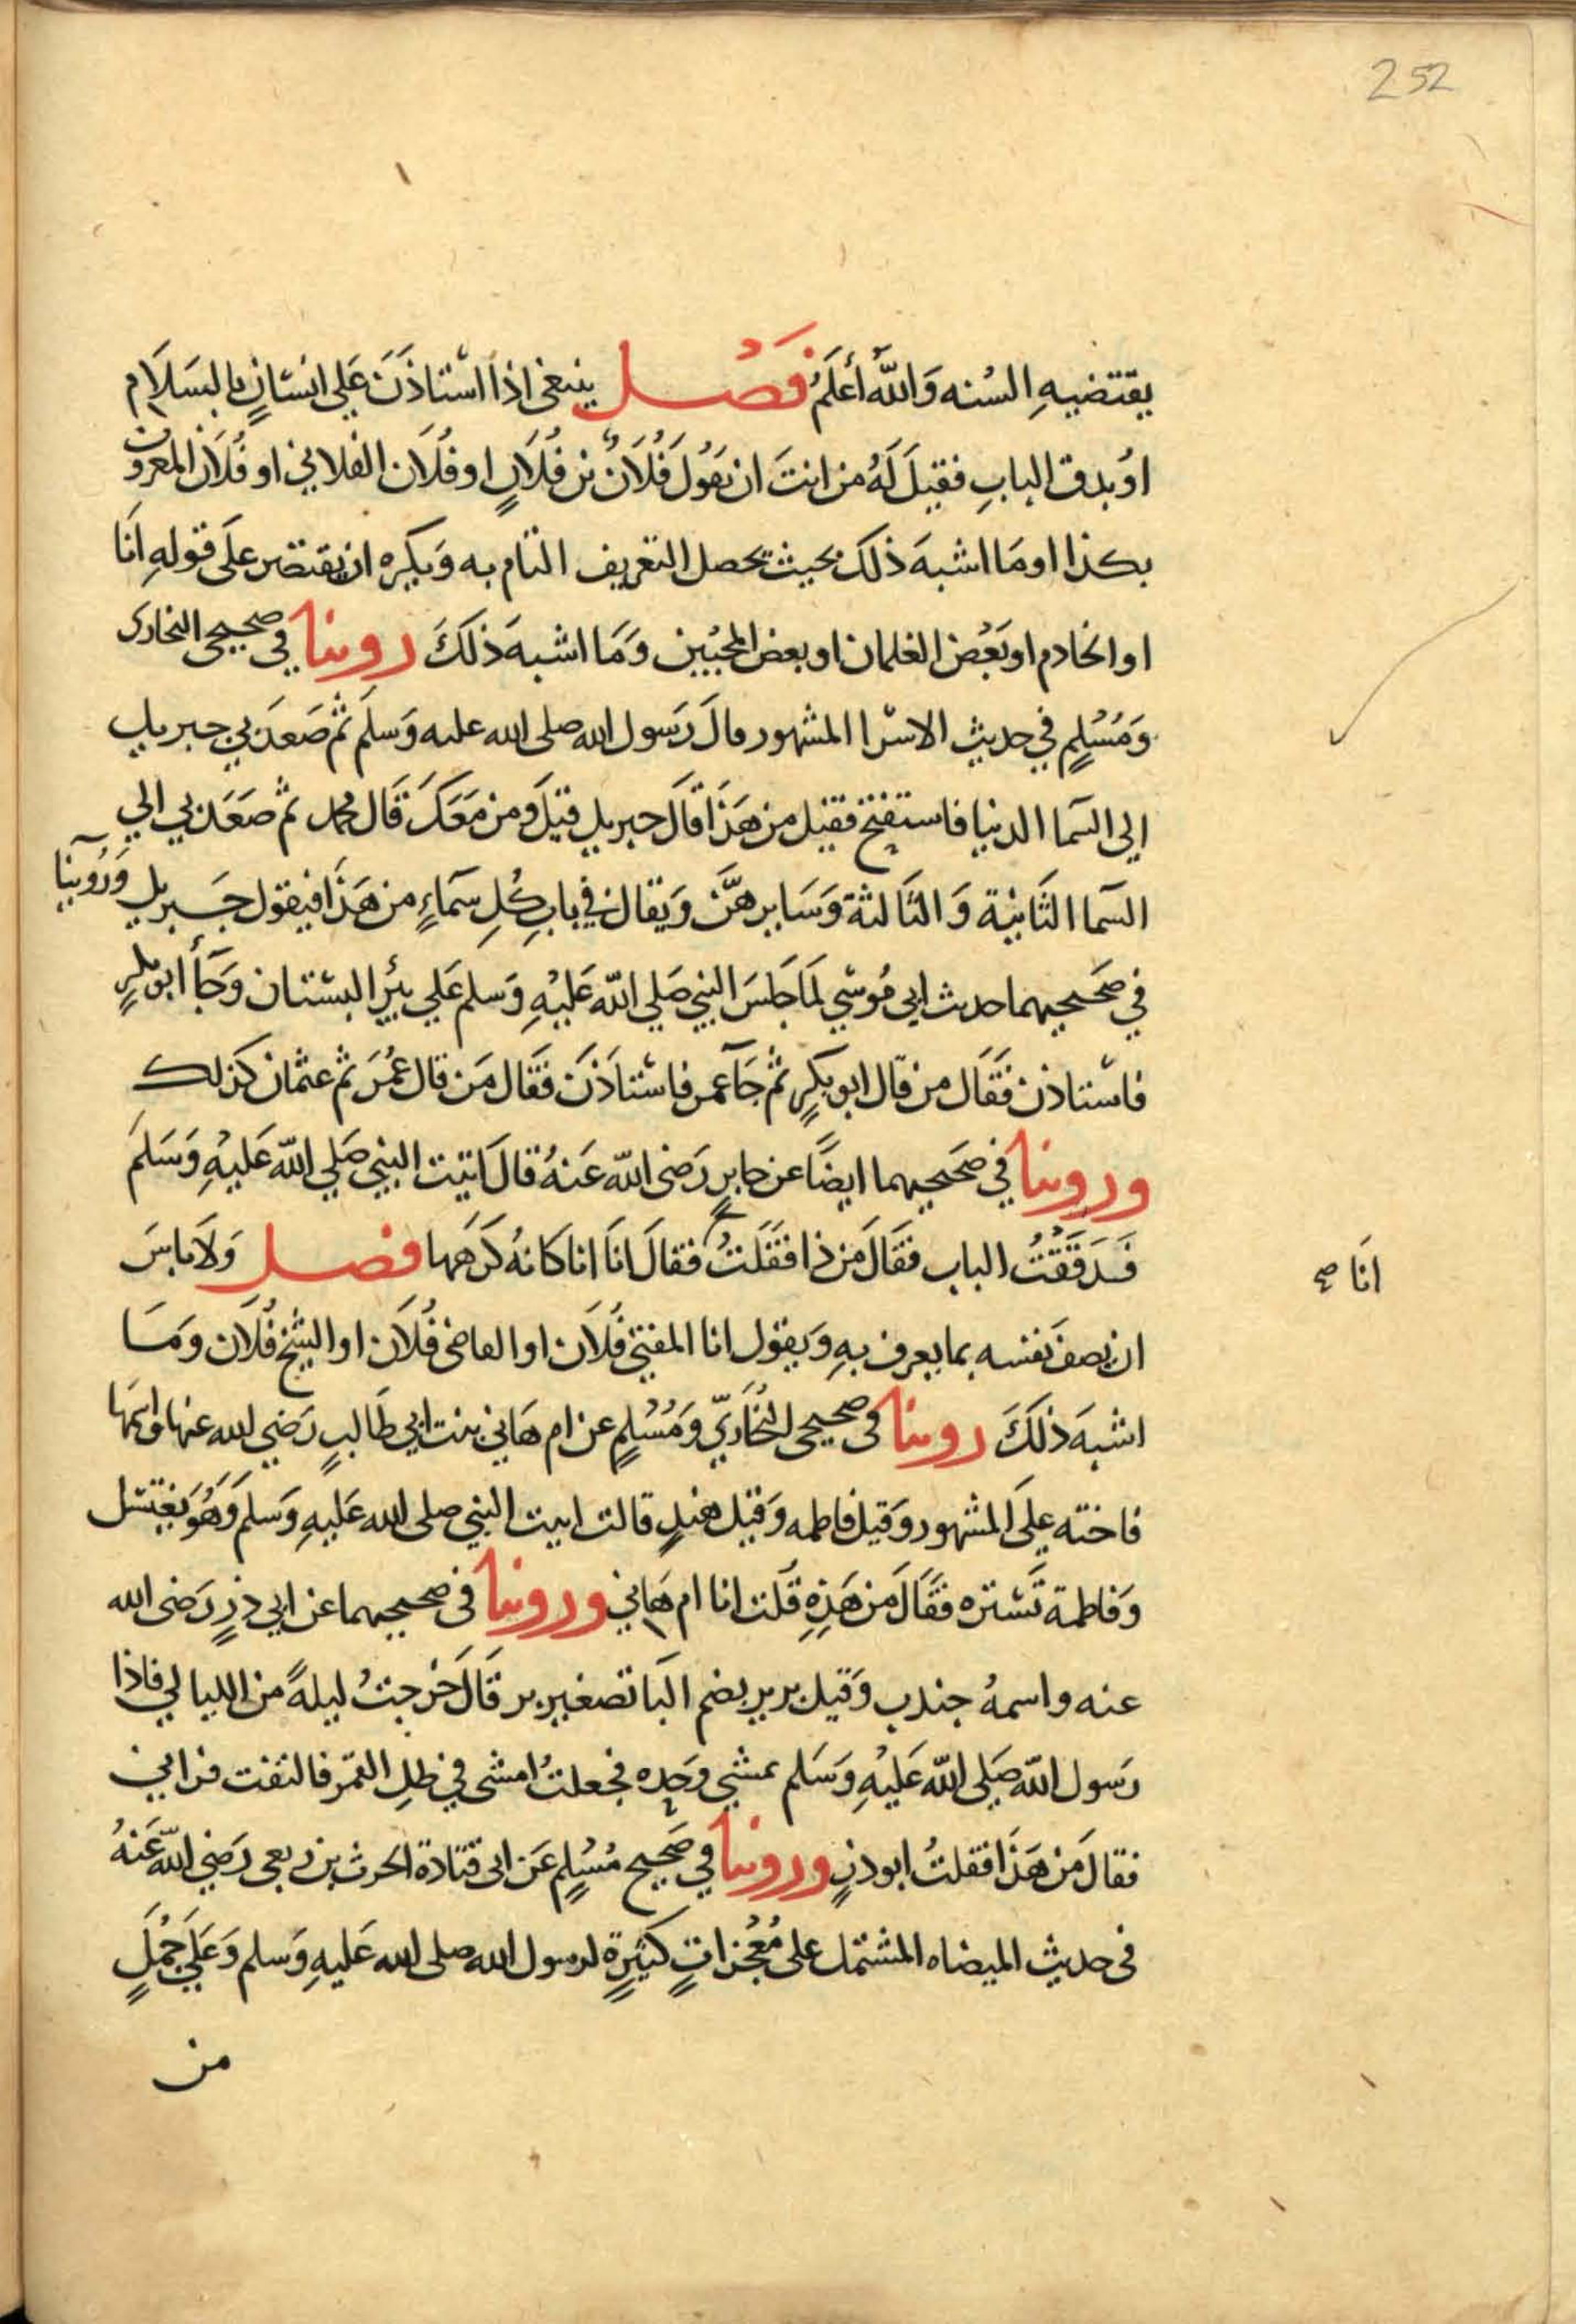 252
يقتضيهِ السُنه وَاللّهُ أعلَمُ فَصْل ينبغى اذا استاذَنَ عَلى انسانٍ بالسَلَام
اوْ بدق البابِ فقيلَ لَهُ من انتَ ان يَقُولَ فُلَانُ بن فُلَانٍ او فُلَان الفلاني او فُلَان المعروف
بكذا او مَا اشبهَ ذلكَ بحيث يحصل التعريف التام به وَيكره ان يقتصر علَى قولهِ انَا
او الخادم او بَعْض الغلمان او بعض المحبّين وَمَا اشبهَ ذلكَ روينا في صحيحى البخارى
وَمُسْلِمٍ في حديث الاسرا المشهور قالَ رَسول الله صلى الله عليه وَسلمَ ثم صَعَدَ بي جبريل
الى السَما الدنيا فاستفتح فقيل من هَذَا قالَ جبريل قيلَ ومن مَعَكَ قَال محمد ثم صَعَدَ بي الي
السَما الثَانية وَ الثَالثة وَسَايرهنّ وَيقال في بابِ كُلِ سَمَاءٍ من هَذَا فيقول جَبريل وَرُوينا
في صَحيحيهما حديث ابي مُوسي لمَا جَلسَ النبي صَلي اللّه عَليْهِ وَسلم عَلي بئرِ البستان وَجَاَ أبو بكرٍ
فاستاذن فقَال من قال ابو بكرٍ ثم جَآ عمر فاستاذَنَ فقَال مَن قال عُمَرَ ثم عثمان كذلك
وروينا في صَحيحيهما ايضًا عن جابرٍ رَضى اللّه عَنهُ قالَ اتيت النبي صَلي اللّه عَليْهِ وَسَلمَ
فَدَقَقْتُ الباب فقَالَ مَن ذا فقَلتُ فقالَ انَا انا كانهُ كَرَهَها فصل وَلَا باسَ
انَا صح
ان يصفَ نَفسه بما يعرف بهِ وَيقول انا المفتي فُلَان او القاضى فُلَان او الشيخ فُلَان وَمَا
اشبهَ ذلكَ روينا فى صحيحى البُخَاريّ وَمُسْلِمٍ عن ام هَاني بنت ابي طَالبٍ رَضي الله عنها واسمها
فاخته علَى المشهور وَقيل فاطمه وَقيل هندٍ قالت اتيت النبي صلى الله عَليهِ وَسلم وَهُوَ يغتسل
وَفاطمة تَستره فقَالَ مَن هَذِهِ قلَت انا ام هَاني وروينا في صحيحيهما عن ابي ذرٍ رَضى الله
عنه واسمهُ جندب وَقيل برير بضم البَا تصغير بر قَالَ خَرجتُ ليلةً من الليالي فاذا
رَسول اللّه صَلي اللّه عَليْهِ وَسَلم يمشي وحده فجعلتُ امشى في ظلِ القمَر فالتفت فراني
فقالَ مَن هَذَا فقلتُ ابو ذرٍ وروينا في صَحيح مُسْلِمٍ عَن ابى قتادة الحرث بن ربعى رَضي اللّه عَنهُ
فى حديث الميضاه المشتمل على مُعْجزاتٍ كثيرةٍ لرسول الله صلى الله عَليهِ وَسلم وَعَلَي جُمَلٍ
من